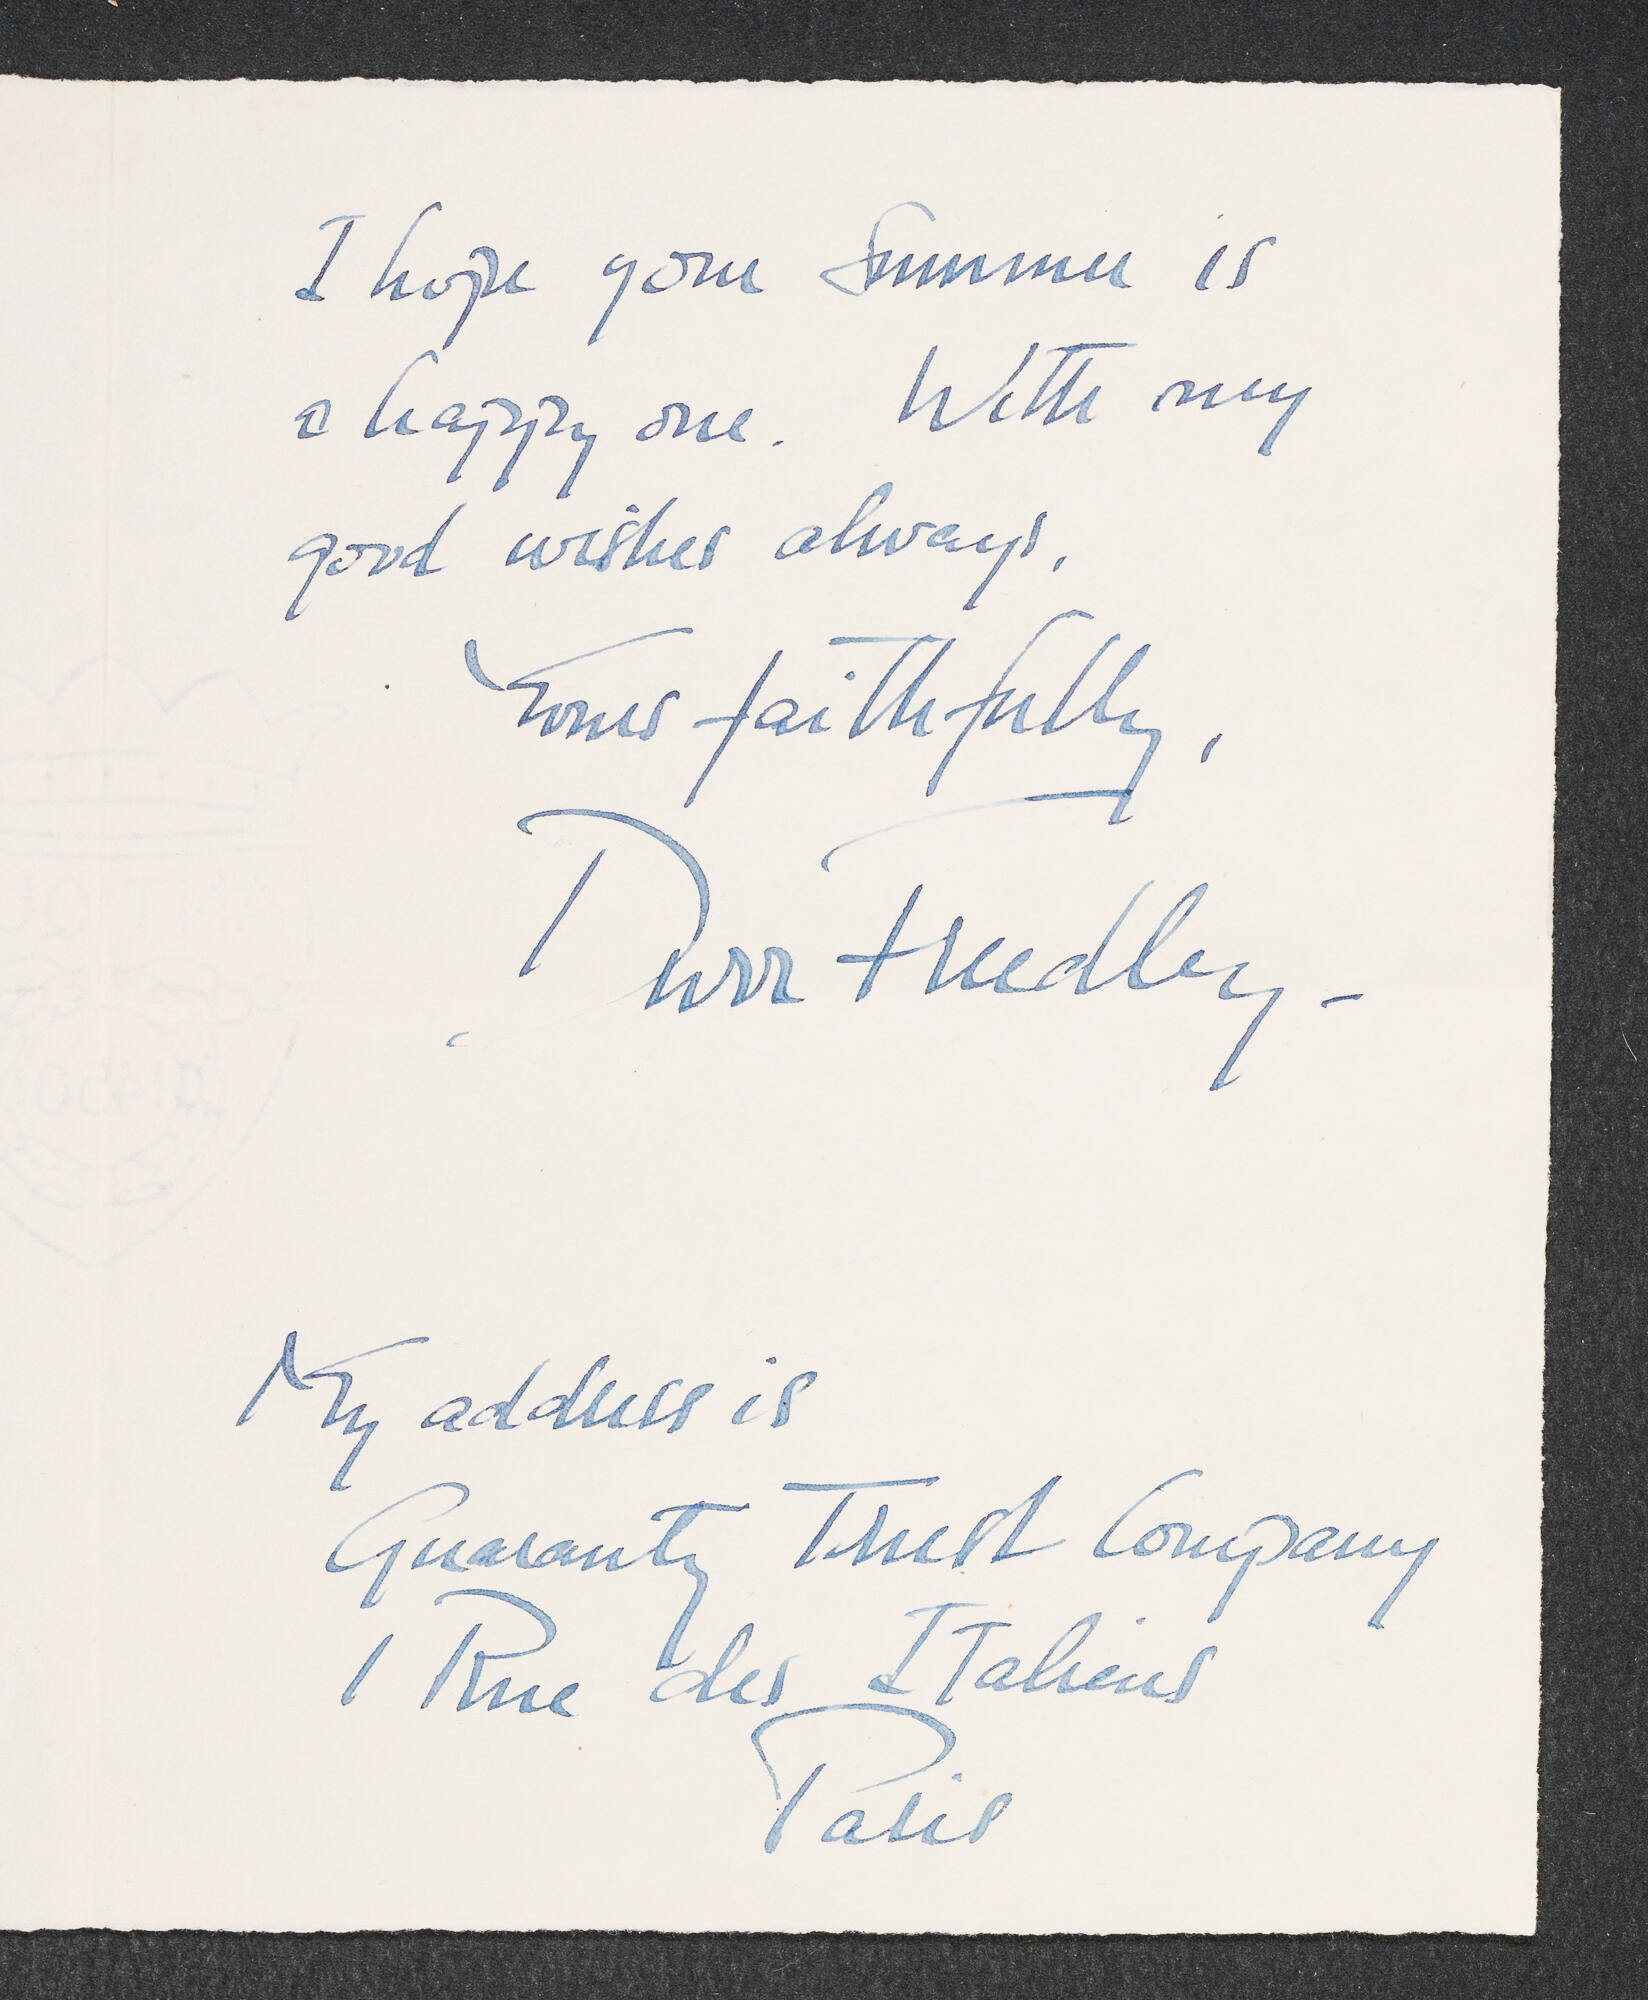 I hope your Summer is
a happy one. With my
good wishes always,
Yours faithfully,
Durr Freedley -
My address is
Guaranty Trust Company
1 Rue des Italiens
Paris